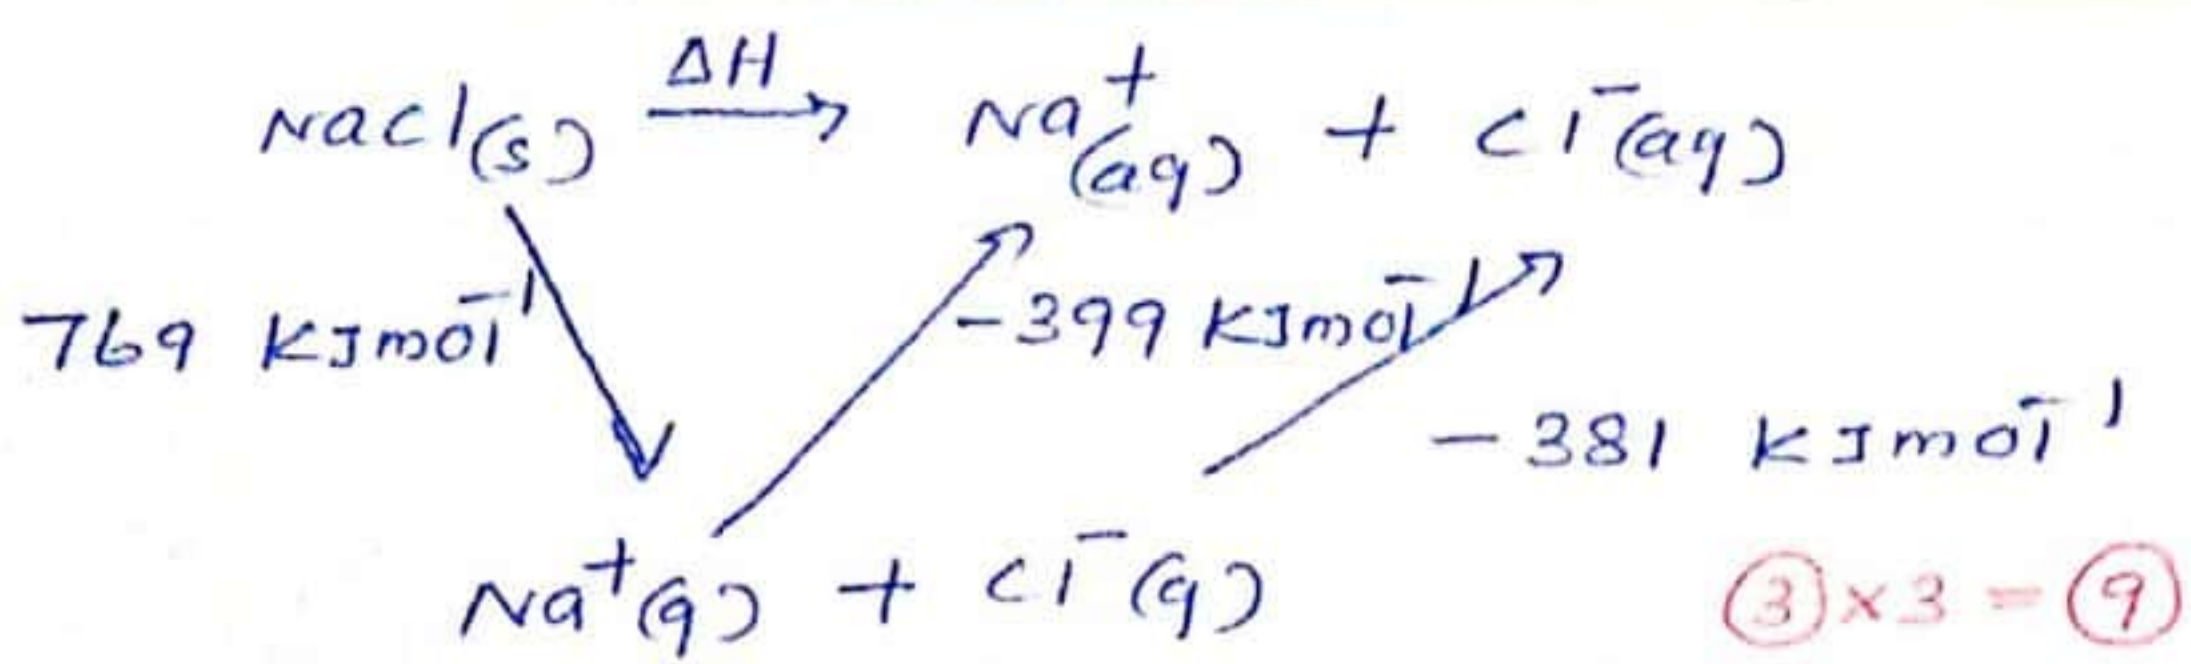 ΔH
NaCl(s) → Na⁺(aq) + Cl⁻(aq)
769 KJmol⁻¹
-399 KJmol⁻¹
-381 KJmol⁻¹
Na⁺(g) + Cl⁻(g)
③×3 = ⑨